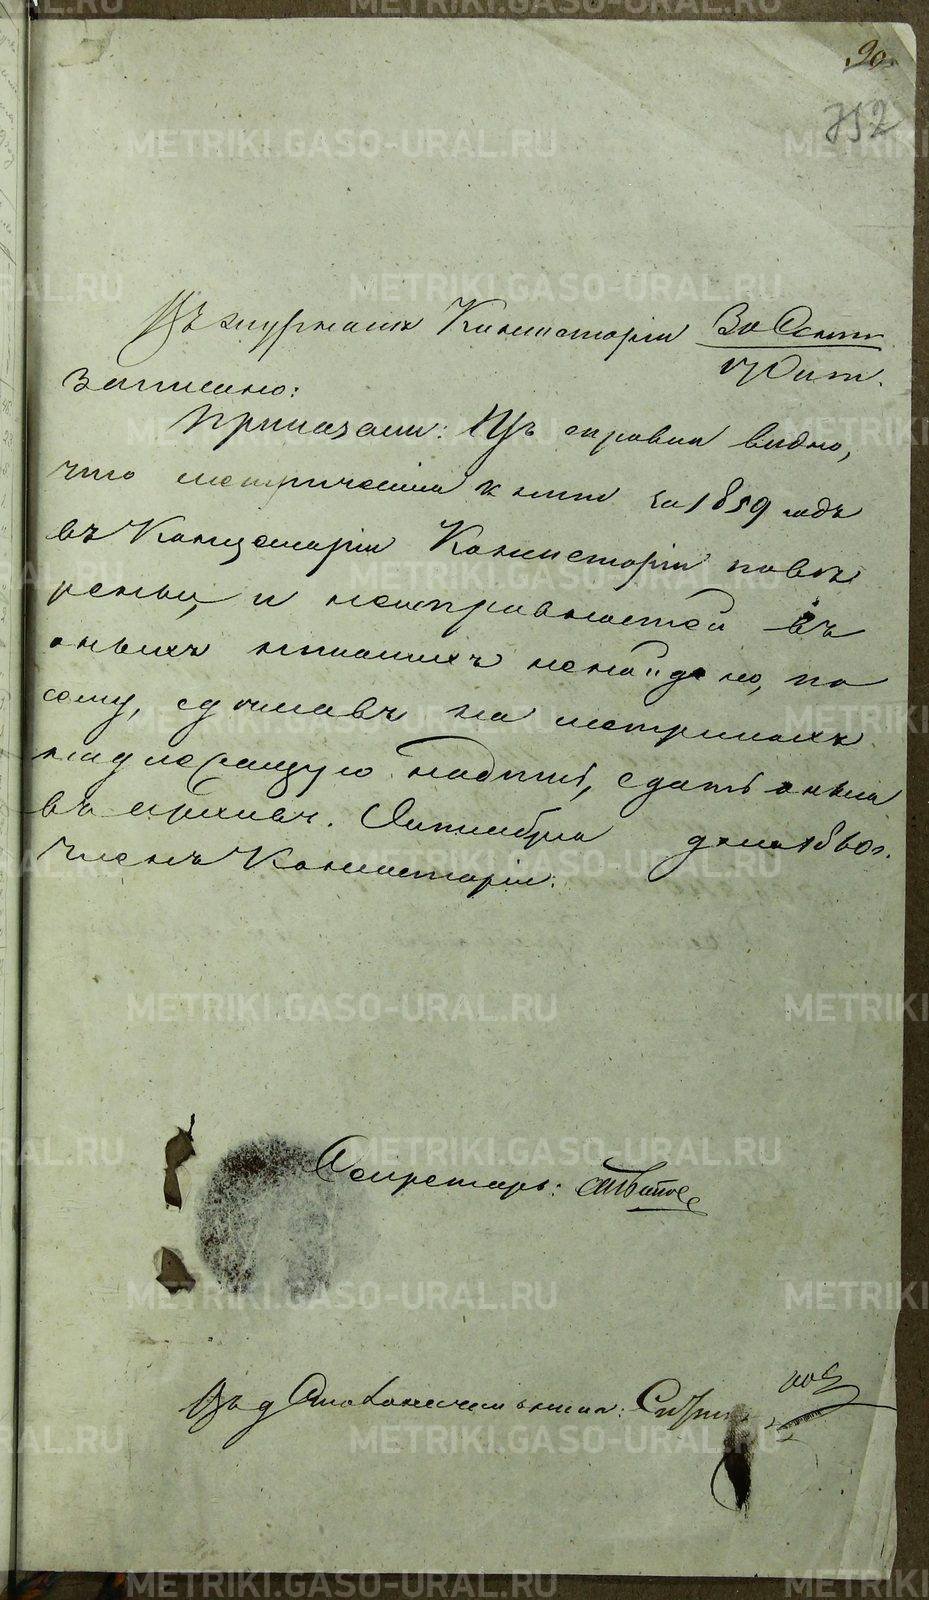 90.
752
Въ журналѣ Консисторіи
записано:
Приказали: Изъ справки видно,
что метрическія книги за 1859 годъ
въ Канцеляріи Консисторіи повѣ
рены, и неисправностей въ
оныхъ никакихъ ненайдено, по
сему, сдѣлавъ на метрикахъ
надлежащую надпись, сдать оныя
въ архивъ. Октября дня 1860 г.
Членъ Консисторіи:
Секретарь:
METRIKI.GASO-URAL.RU